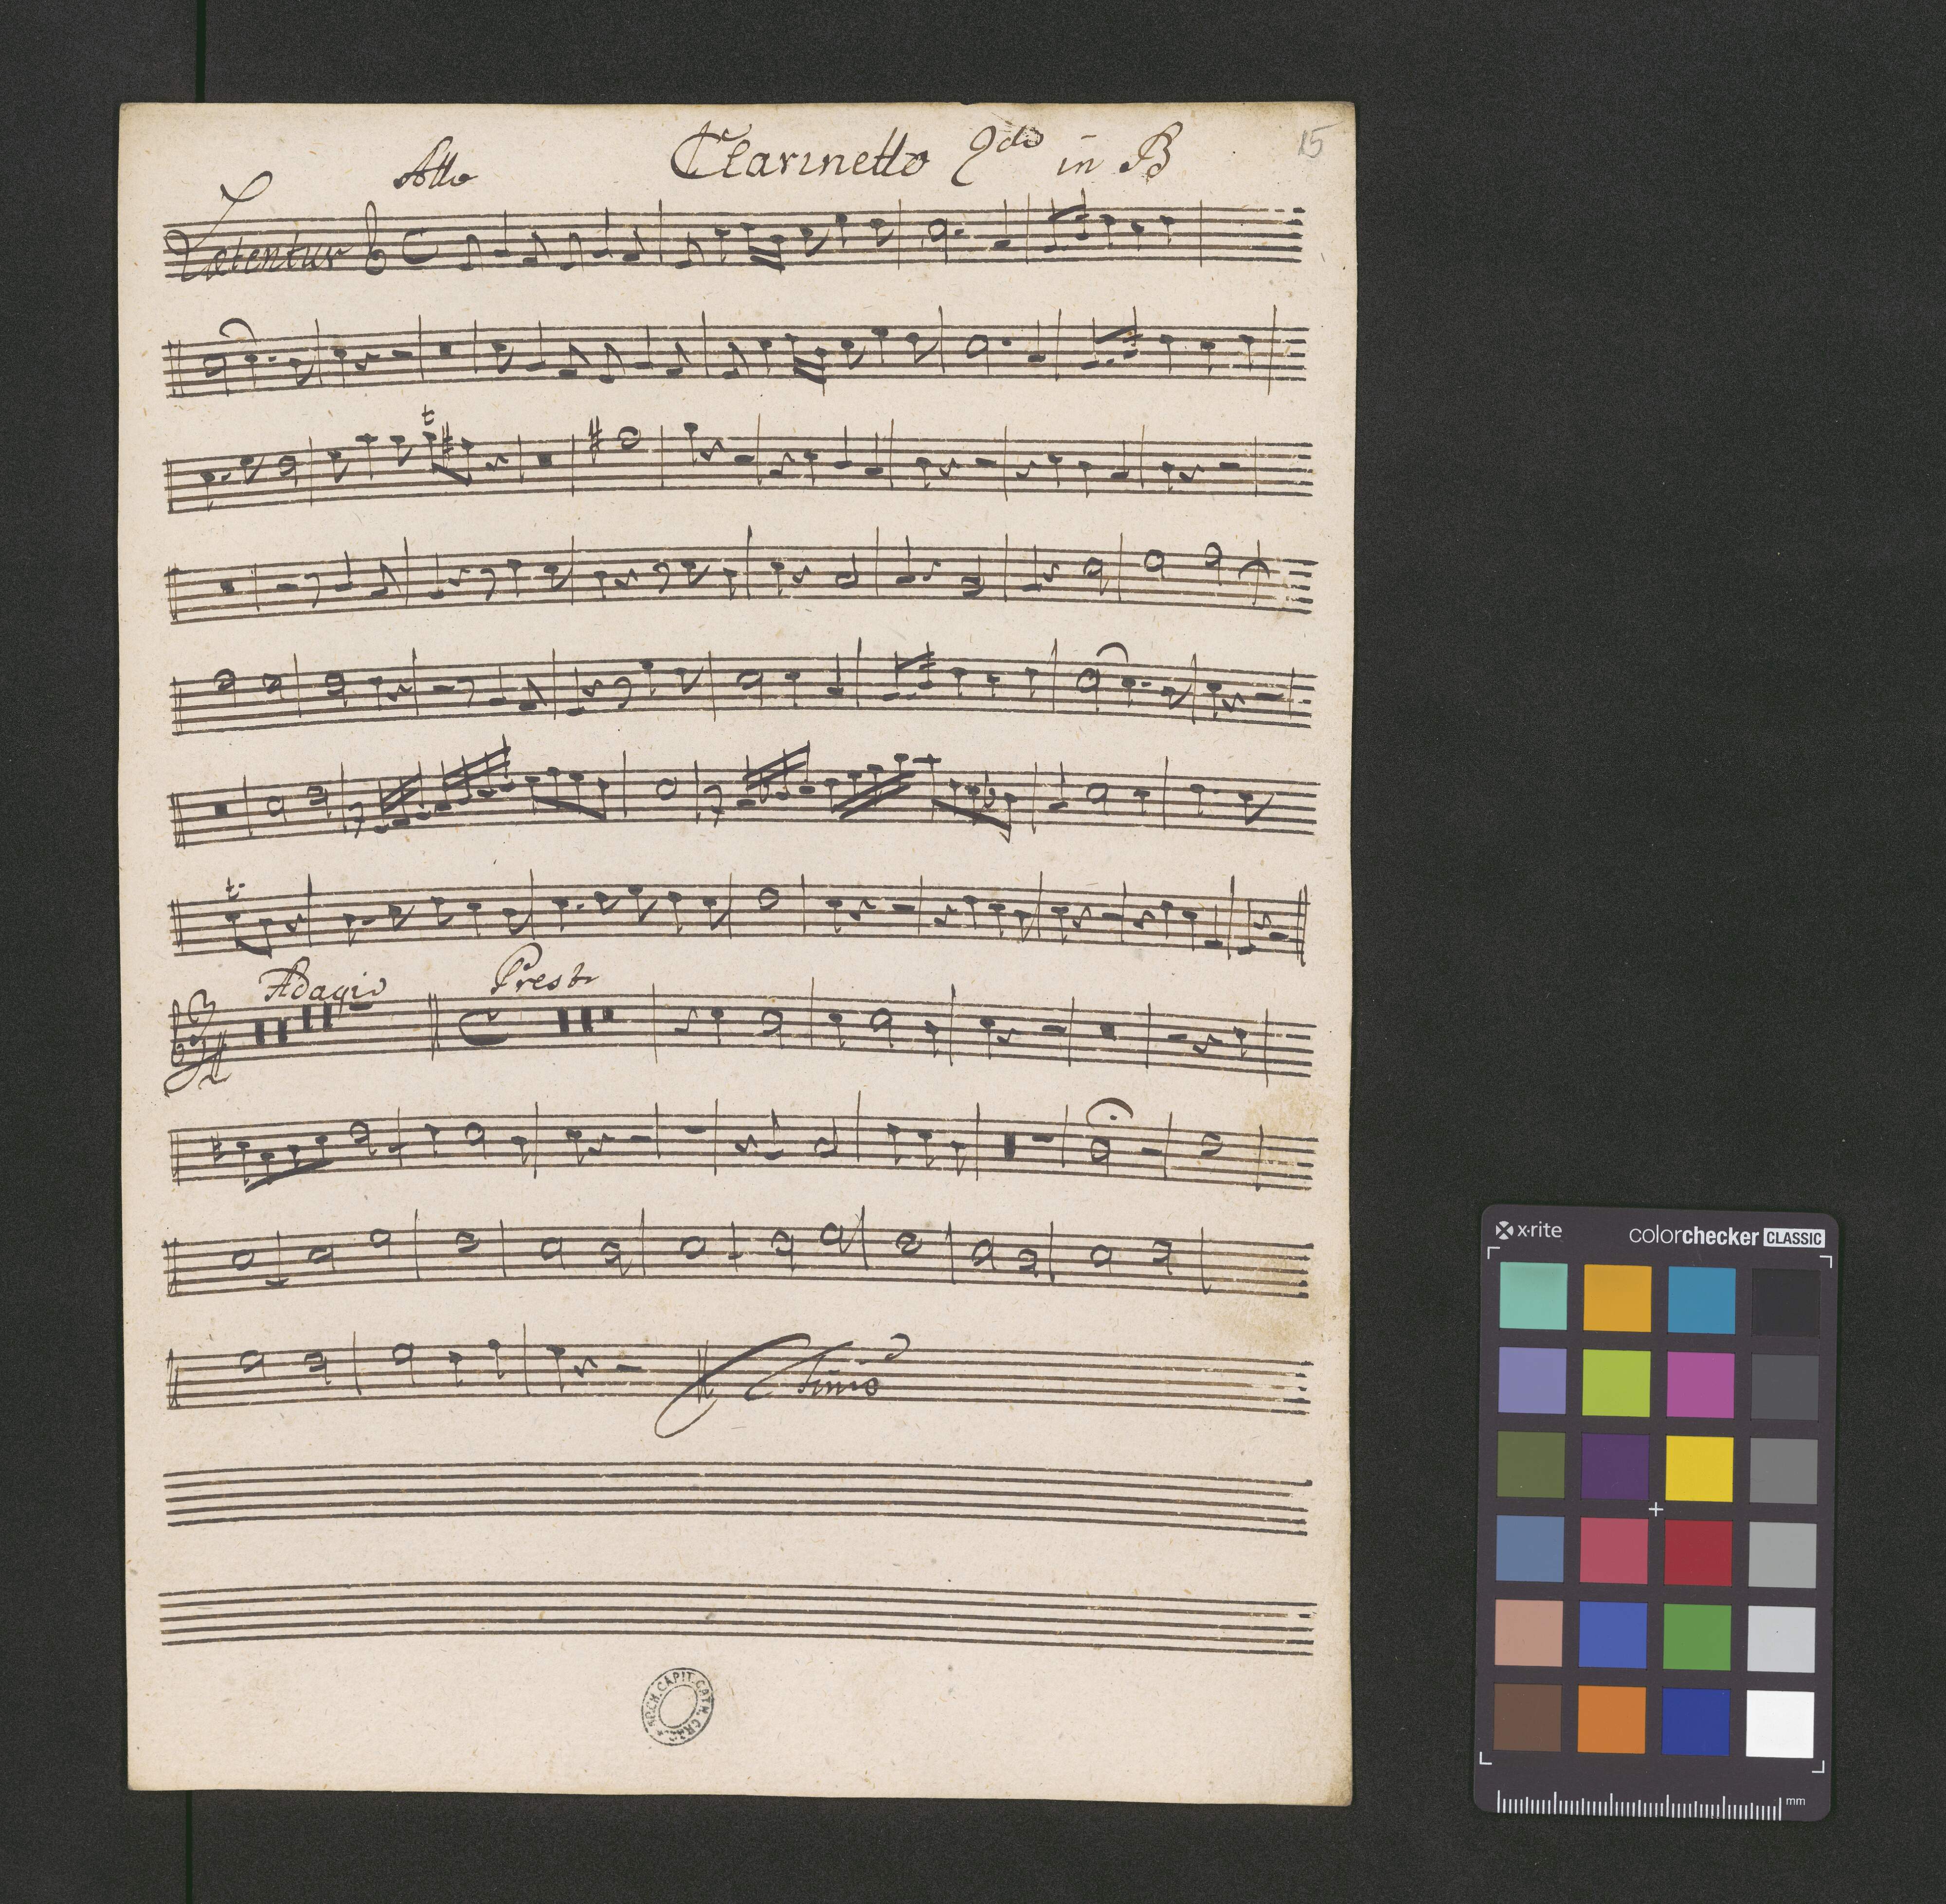 Allo Clarinetto 2do in B 15
Lætentur
t
t.
Adagio Presto
Fine
ARCH. CAPIT. CATH. CRAC.
x-rite colorchecker CLASSIC
mm